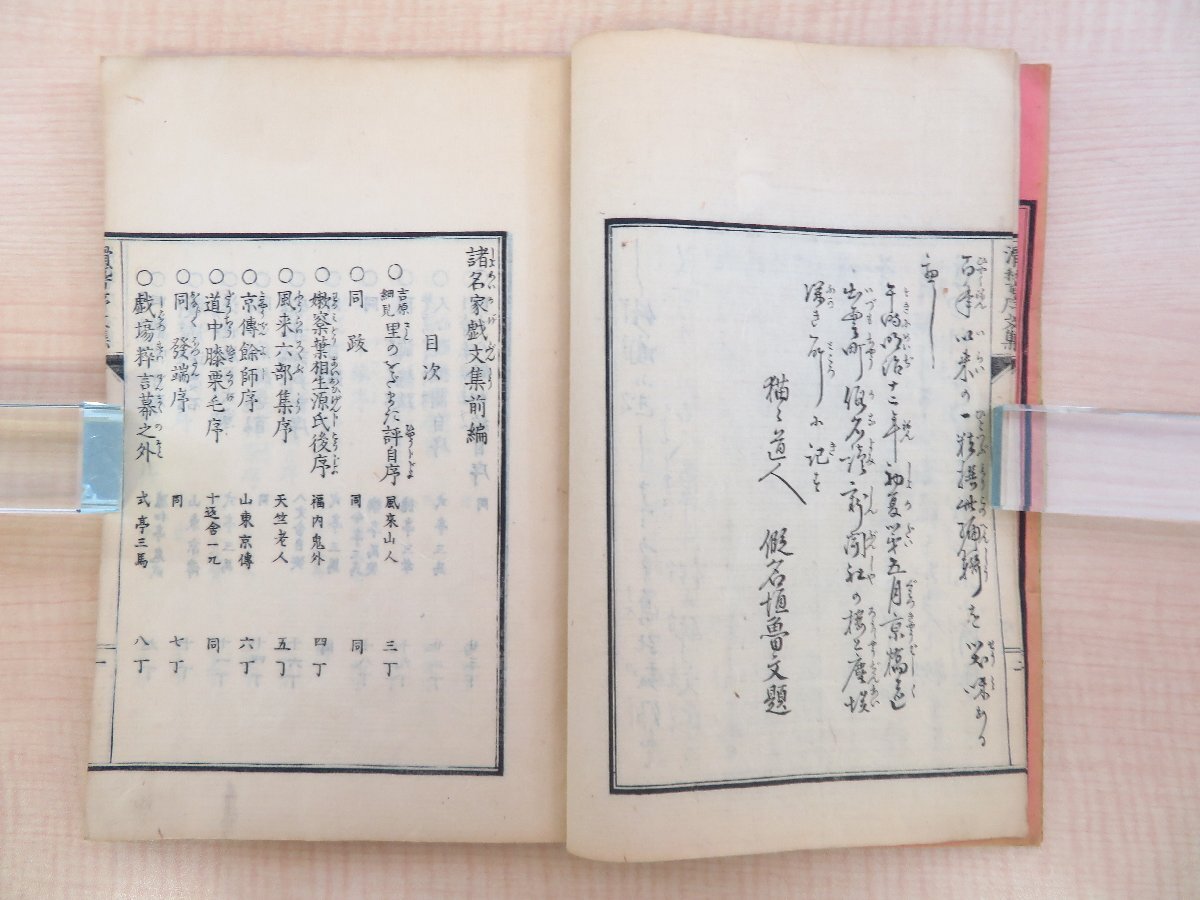 百年以来の一粧撰此編輯を笑味ある
べし
午時明治十二年初夏第五月京橋辺
出雲町仮名読新聞社の楼上塵埃
深き所に記す
猫々道人 假名垣魯文題
諸名家戯文集前編
目次
○吉原細見里のをだまき評自序 風來山人 三丁
○同跋 同 同
○嫩窠葉相生源氏後序 福内鬼外 四丁
○風来六部集序 天竺老人 五丁
○京傳餘師序 山東京傳 六丁
○道中膝栗毛序 十返舎一九 同
○同發端序 同 七丁
○戯場粋言幕之外 式亭三馬 八丁